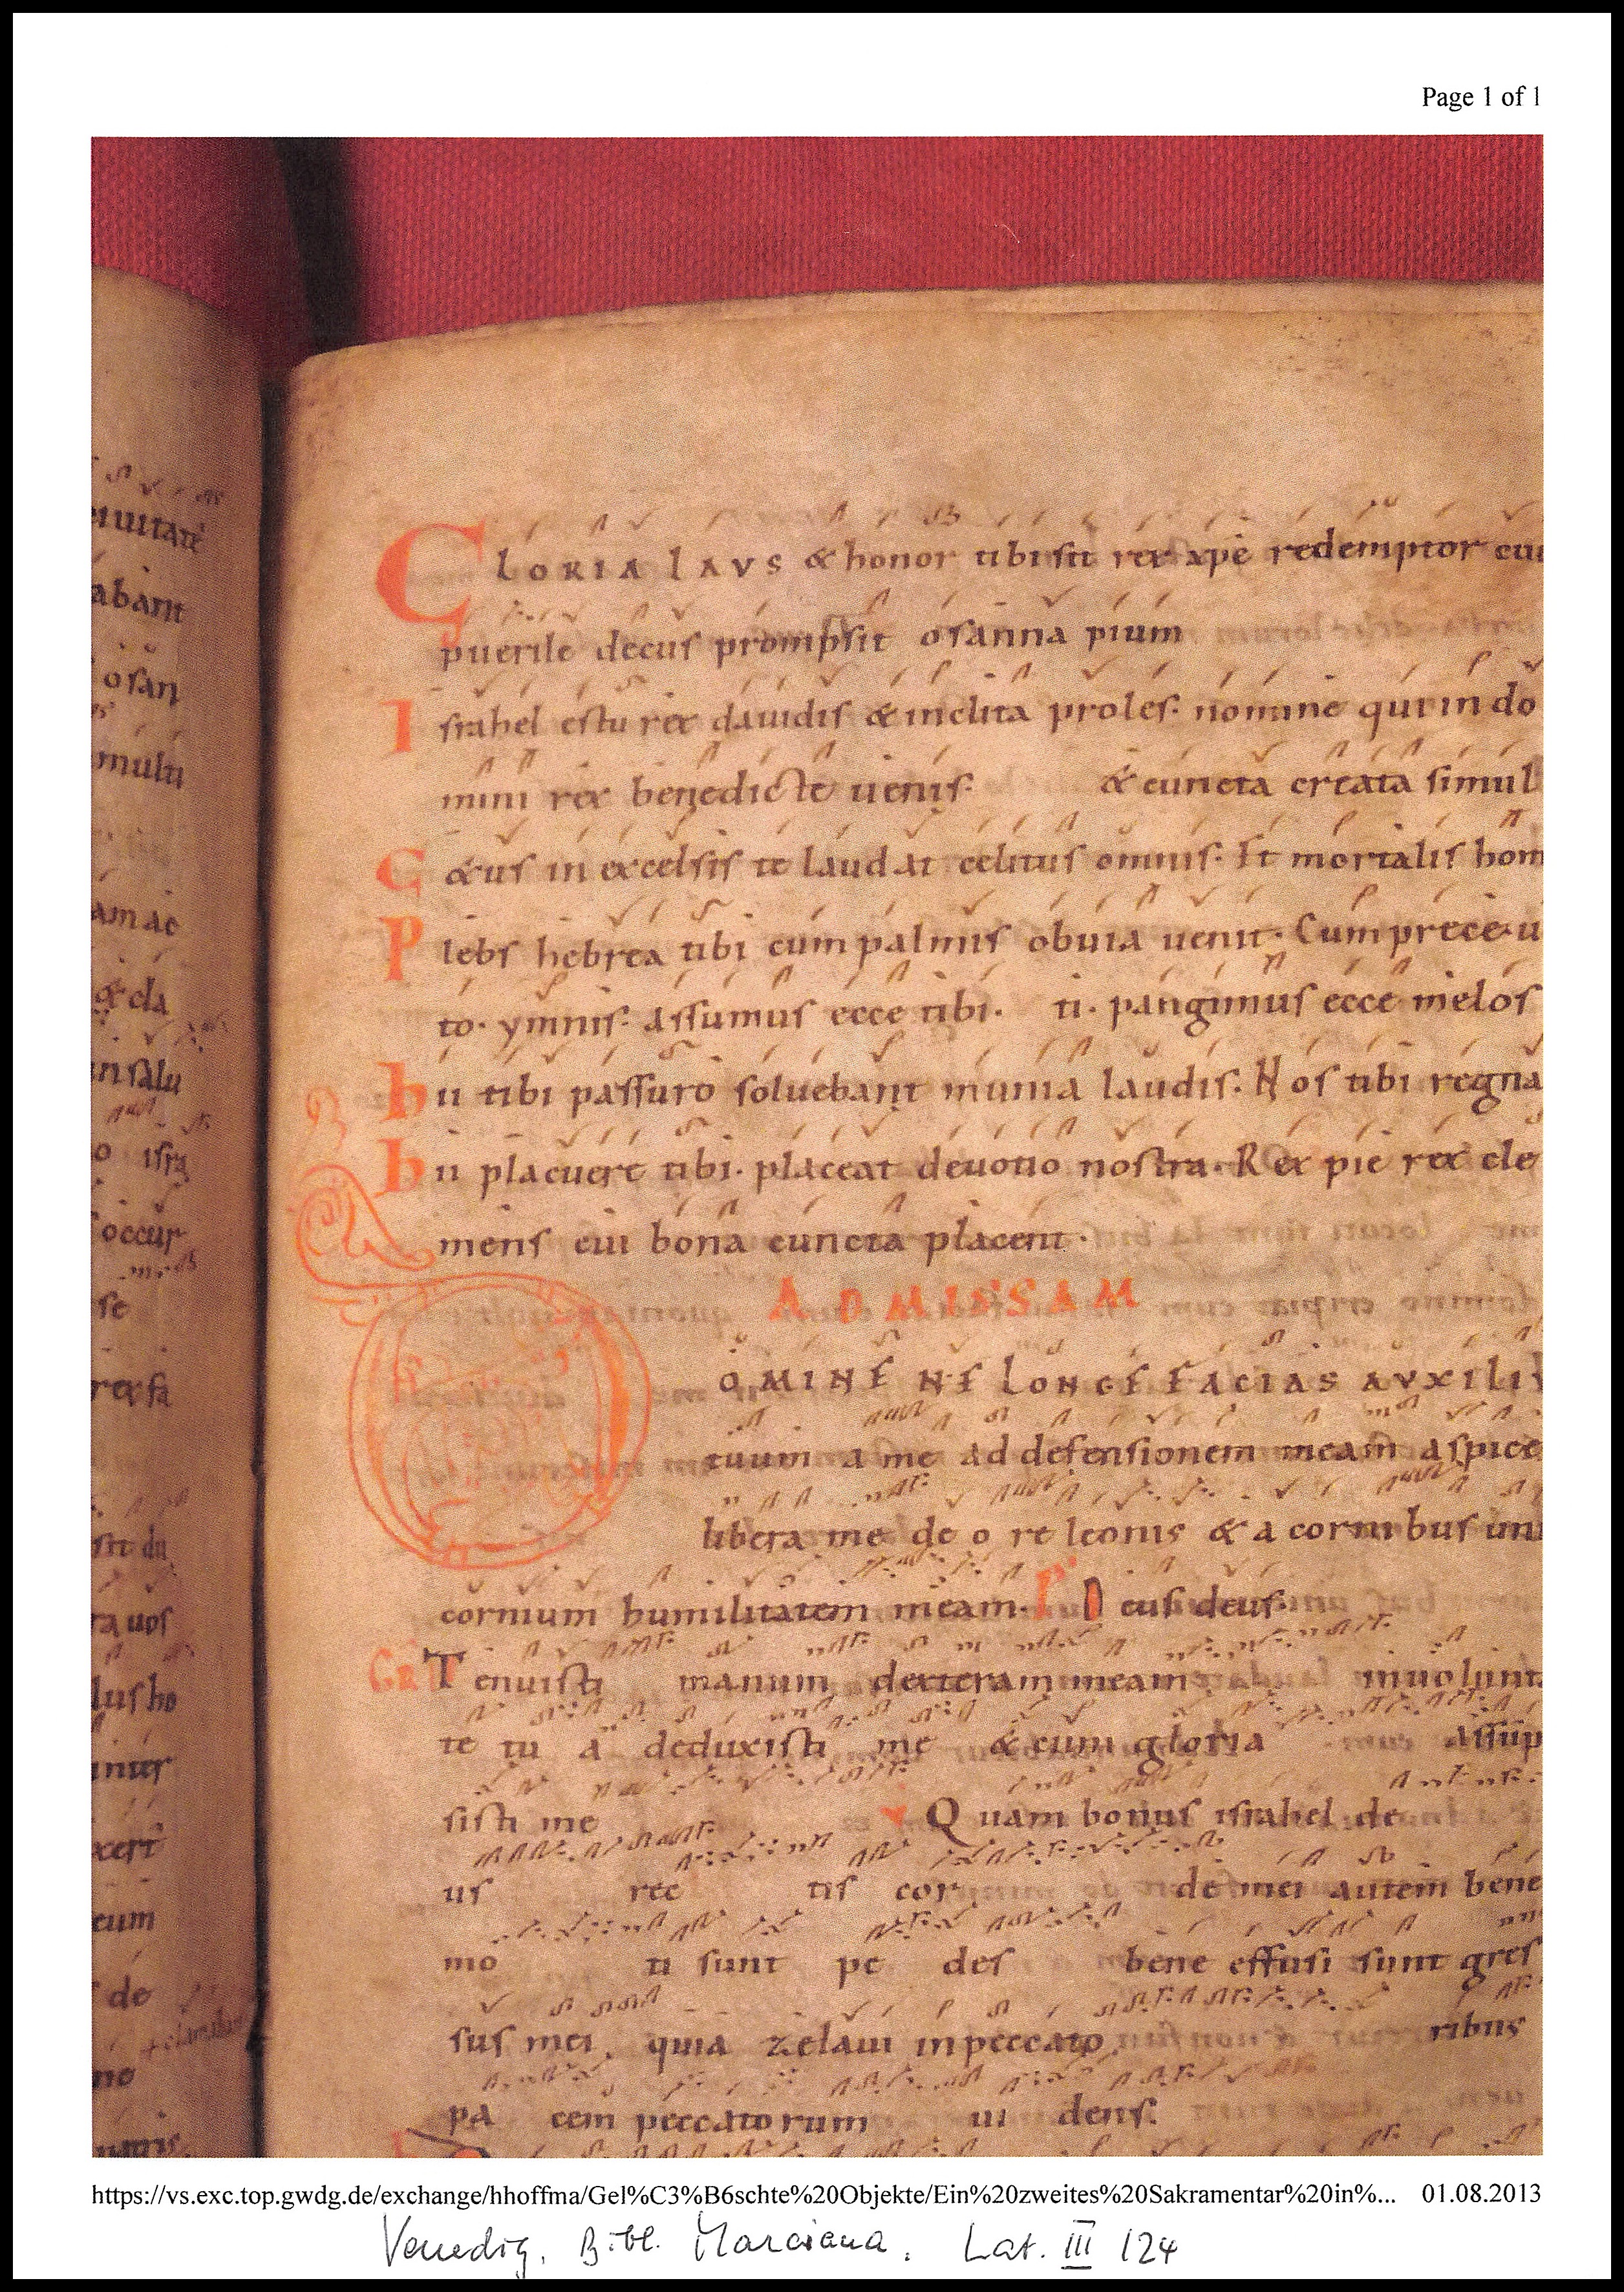 Page 1 of 1
eruitatē
abant
osan
multi
am ac
& cla
in salu
o isra
occur
se
rex sa
sit du
ra uos
lus ho
intus
xert
cum
de
no
GLORIA LAVS & honor tibi sit rex xpē redemptor cui
puerile decus prompsit osanna pium
Israhel es tu rex dauidis & inclita proles. nomine qui in do
mini rex benedicte uenis. & cuncta creata simul
Cœtus in excelsis te laudat celitus omnis. Et mortalis hom
Plebs hebrea tibi cum palmis obuia uenit. Cum prece u
to. ymnis. assumus ecce tibi. ti. pangimus ecce melos
hii tibi passuro soluebant munia laudis. Nos tibi regna
hii placuere tibi. placeat deuotio nostra. Rex pie rex cle
mens cui bona cuncta placent.
AD MISSAM
DOMINE NE LONGE FACIAS AVXILIV
tuum a me ad defensionem meam aspice
libera me de o re leonis & a cornibus uni
cornium humilitatem meam. P Deus deus
GR Tenuisti manum dexteram meam in uolunt
te tu a deduxisti me & cum gloria assūp
sisti me V Quam bonus israhel de
us rec tis cor de mei autem bene
mo ti sunt pe des bene effusi sunt gres
sus mei. quia zelaui in peccato ribus
pa cem peccatorum ui dens.
https://vs.exc.top.gwdg.de/exchange/hhoffma/Gel%C3%B6schte%20Objekte/Ein%20zweites%20Sakramentar%20in%... 01.08.2013
Venedig, Bibl. Marciana, Lat. III 124